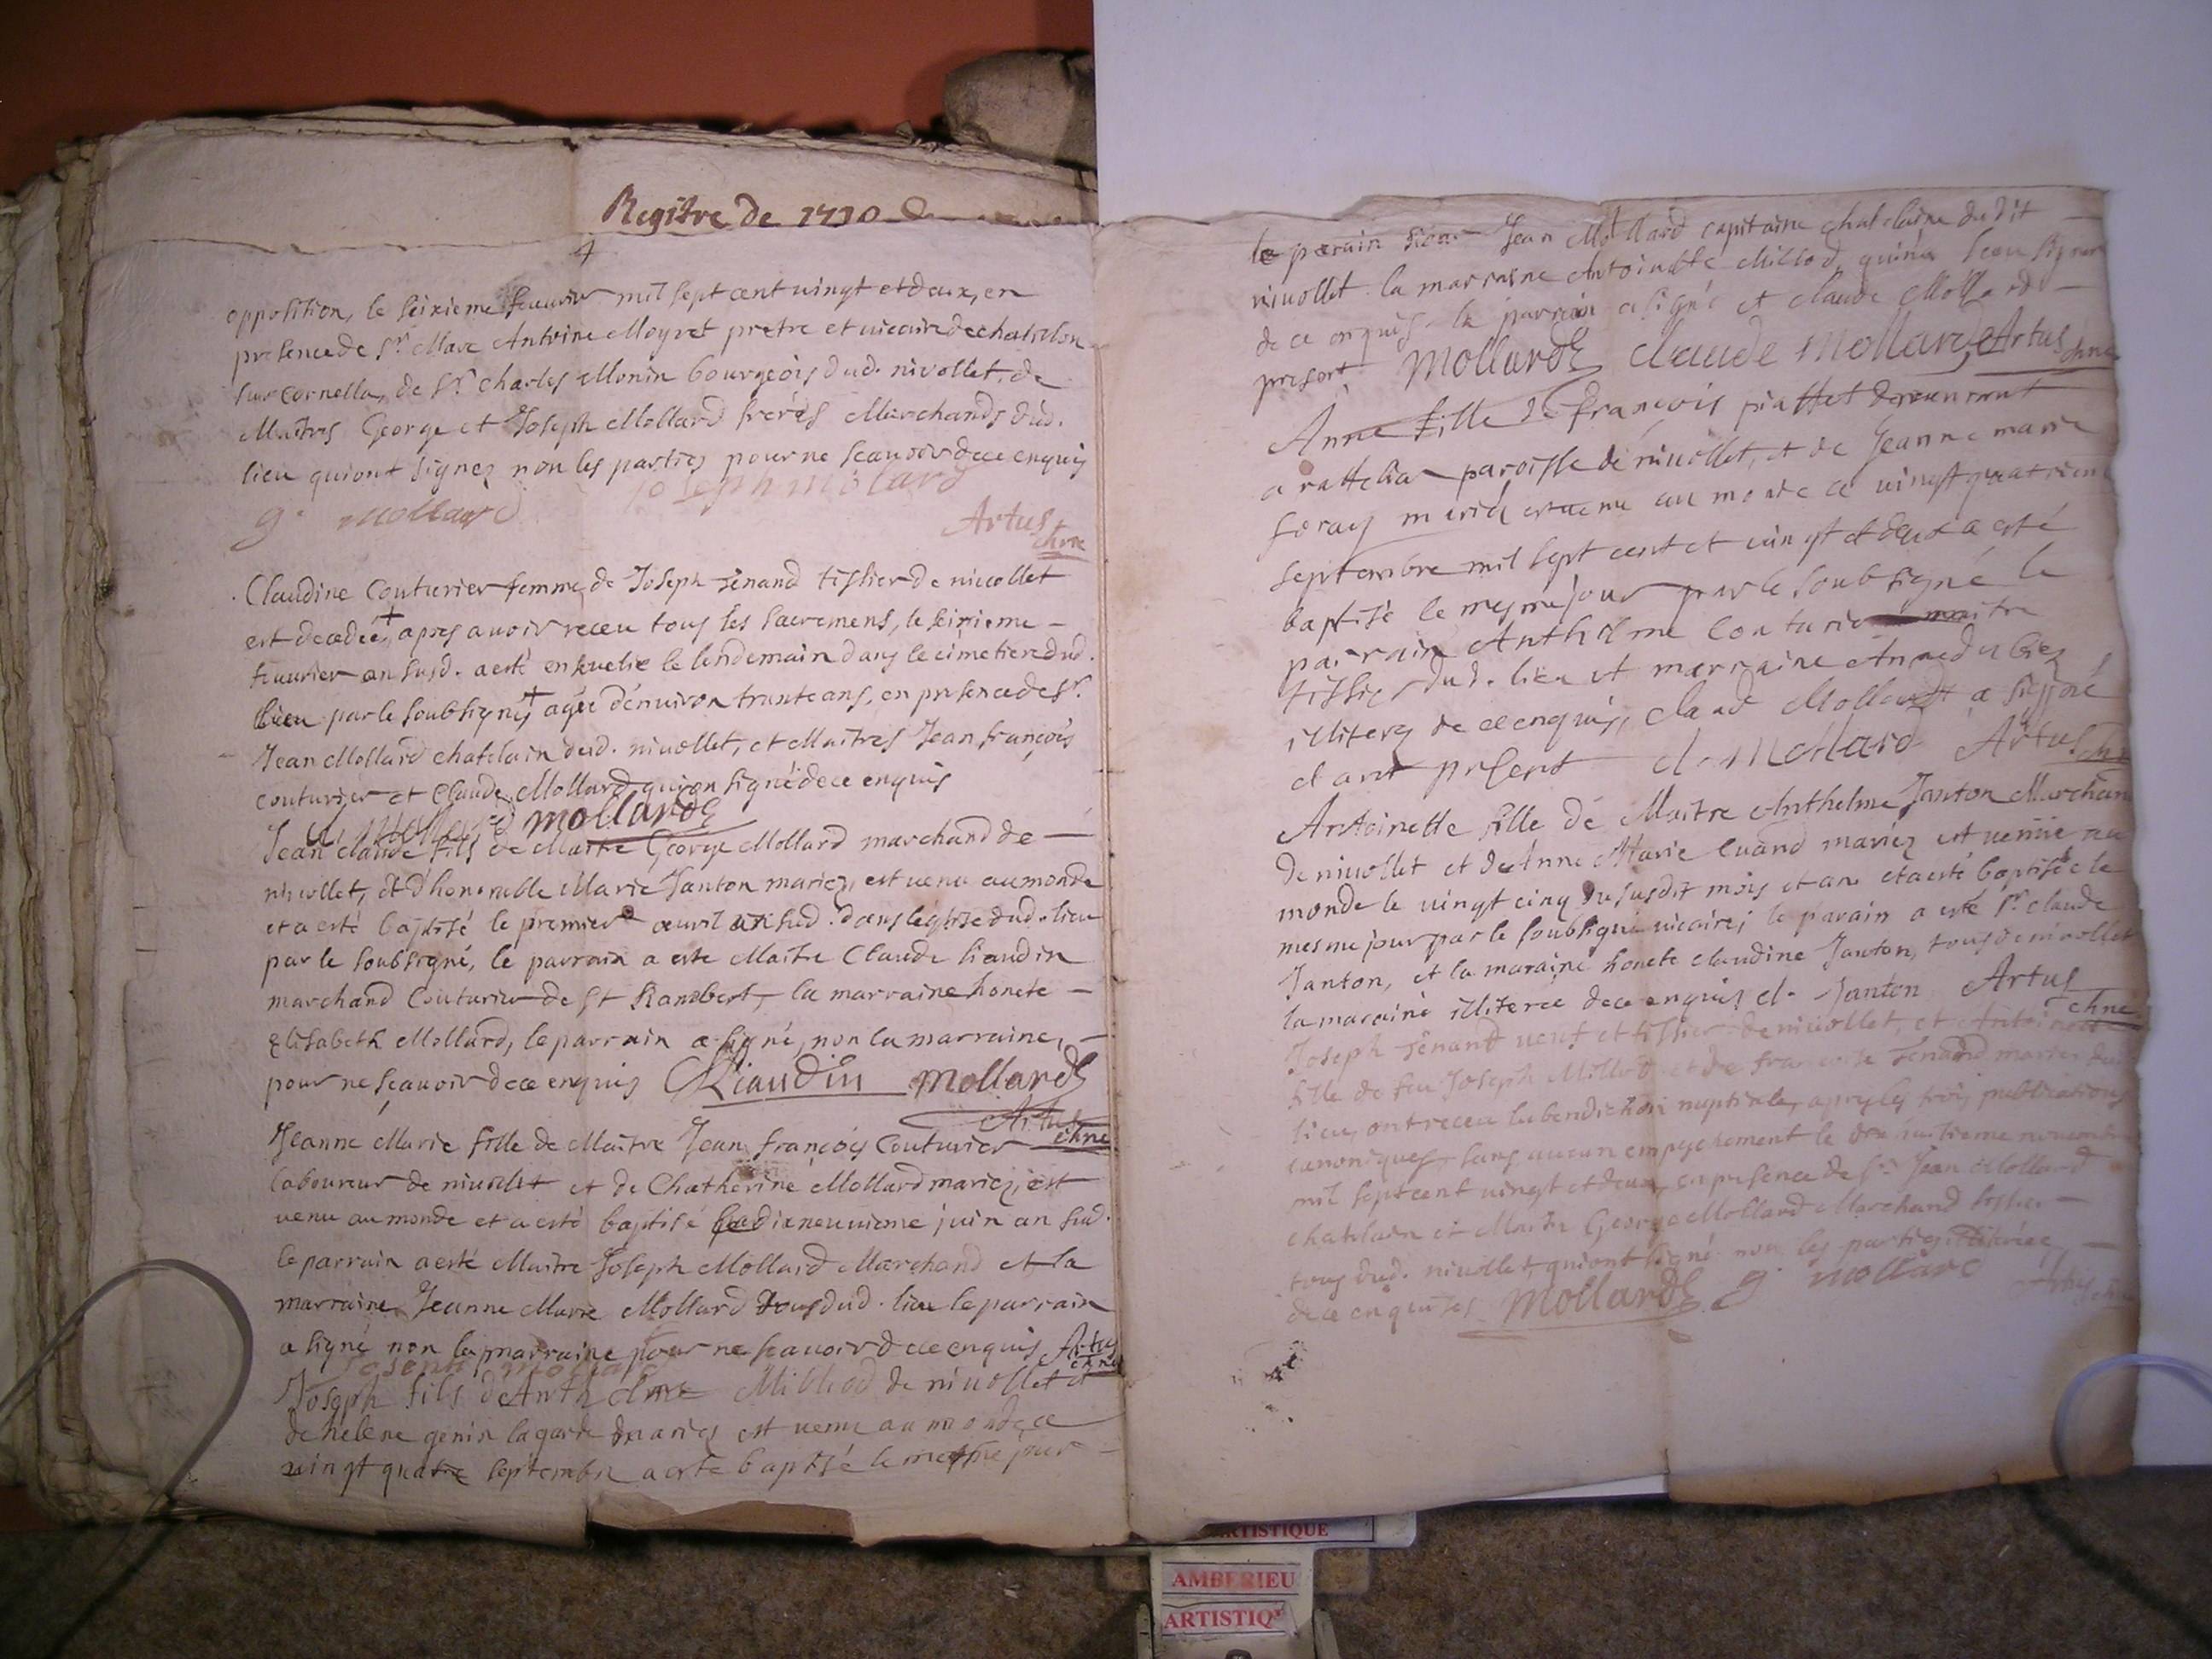 Registre de 1710
opposition, le seixieme feuvrier mil sept cent vingt et deux, en
presence de Sr. Marc Antoine Moyret pretre et vicaire de chatilon
sur cornella, de Sr. Charles Monin bourgeois dud. nivollet, de
Maitres George et Joseph Mollard freres Marchands dud.
lieu qui ont signez non les parties pour ne scavoir de ce enquis
g. mollard Joseph molard
Artus
Claudine Couturier femme de Joseph Tenand tissier de nivollet
est decedée, apres avoir receu tous les sacremens, le seixieme
feuvrier an susd. a esté ensevelie le lendemain dans le cimetiere dud.
lieu par le soubsigné, agée d'environ trante ans, en presence de Sr.
Jean Mollard chatelain dud. nivollet, et Maitres Jean françois
couturier et Claude Mollard qui on signé de ce enquis
cl. mollard mollard
Jean claude fils de Maitre George Mollard marchand de
nivollet, et d'honorable Marie Janton mariez, est venu au monde
et a esté baptisé le premier avril an sud. dans l'eglise dud. lieu
par le soubsigné, le parrain a este Maitre Claude Liaudin
marchand couturier de St Rambert, la marraine honete
Elisabeth Mollard, le parrain a signé, non la marraine,
pour ne scavoir de ce enquis CLiaudin mollard
Artus
Jeanne Marie fille de Maitre Jean françois Couturier
laboureur de nivollet et de Chatherine Mollard mariez, est
venu au monde et a esté baptisé le dixneuvieme juin an sud.
le parrain a esté Maitre Joseph Mollard Marchand et la
marraine Jeanne Marie Mollard tous dud. lieu le parrain
a signé non la marraine pour ne scavoir de ce enquis Artus
Joseph mollard
Joseph fils d'Anthelme Milliod de nivollet et
de helene genin lagarde mariez est venu au monde ce
vingt quatre septembre a esté baptisé le mesme jour
le parain sieur Jean Mollard capitaine chatelaine du dit
nivollet la marraine Antoinette Milliod, qui n'a sceu signer
de ce enquis le parrain a signé et claude Mollard
present Mollard claude mollard Artus
Anne fille de françois piattet demeurant
a rattelia paroisse de nivollet, et de Jeanne marie
foray mariés est venu au monde ce vingt quatrieme
septembre mil sept cent et vingt et deux a esté
baptisé le mesme jour par le soubsigné le
parrain Anthelme Couturier maitre
tissier dud. lieu et marraine Anne
illiterez de ce enquis, claude Mollard a signé
etant present cl. mollard Artus
Antoinette fille de Maitre Anthelme Janton Marchand
de nivollet et de Anne Marie cuand mariez est venüe au
monde le vingt cinq du susdit mois et an et a esté baptisée le
mesme jour par le soubsigné vicaire; le parain a este Sr. claude
Janton, et la maraine honete claudine Janton, tous de nivollet
la maraine illiterée de ce enquis cl. Janton Artus
Joseph Tenand veuf et tissier de nivollet, et Antoinette
fille de feu Joseph Milliod et de françoise Tenand mariez dud.
lieu, ont receu la benediction nuptiale, apres les trois publications
canoniques sans aucun empechement le dix huitieme novembre
mil sept cent vingt et deux, en presence de Sr. Jean Mollard
chatelain et Maitre George Mollard Marchand tissier
tous dud. nivollet, qui ont signé non les parties illiterées
de ce enquises Mollard g. mollard Artus
ARTISTIQUE
AMBERIEU
ARTISTIQ